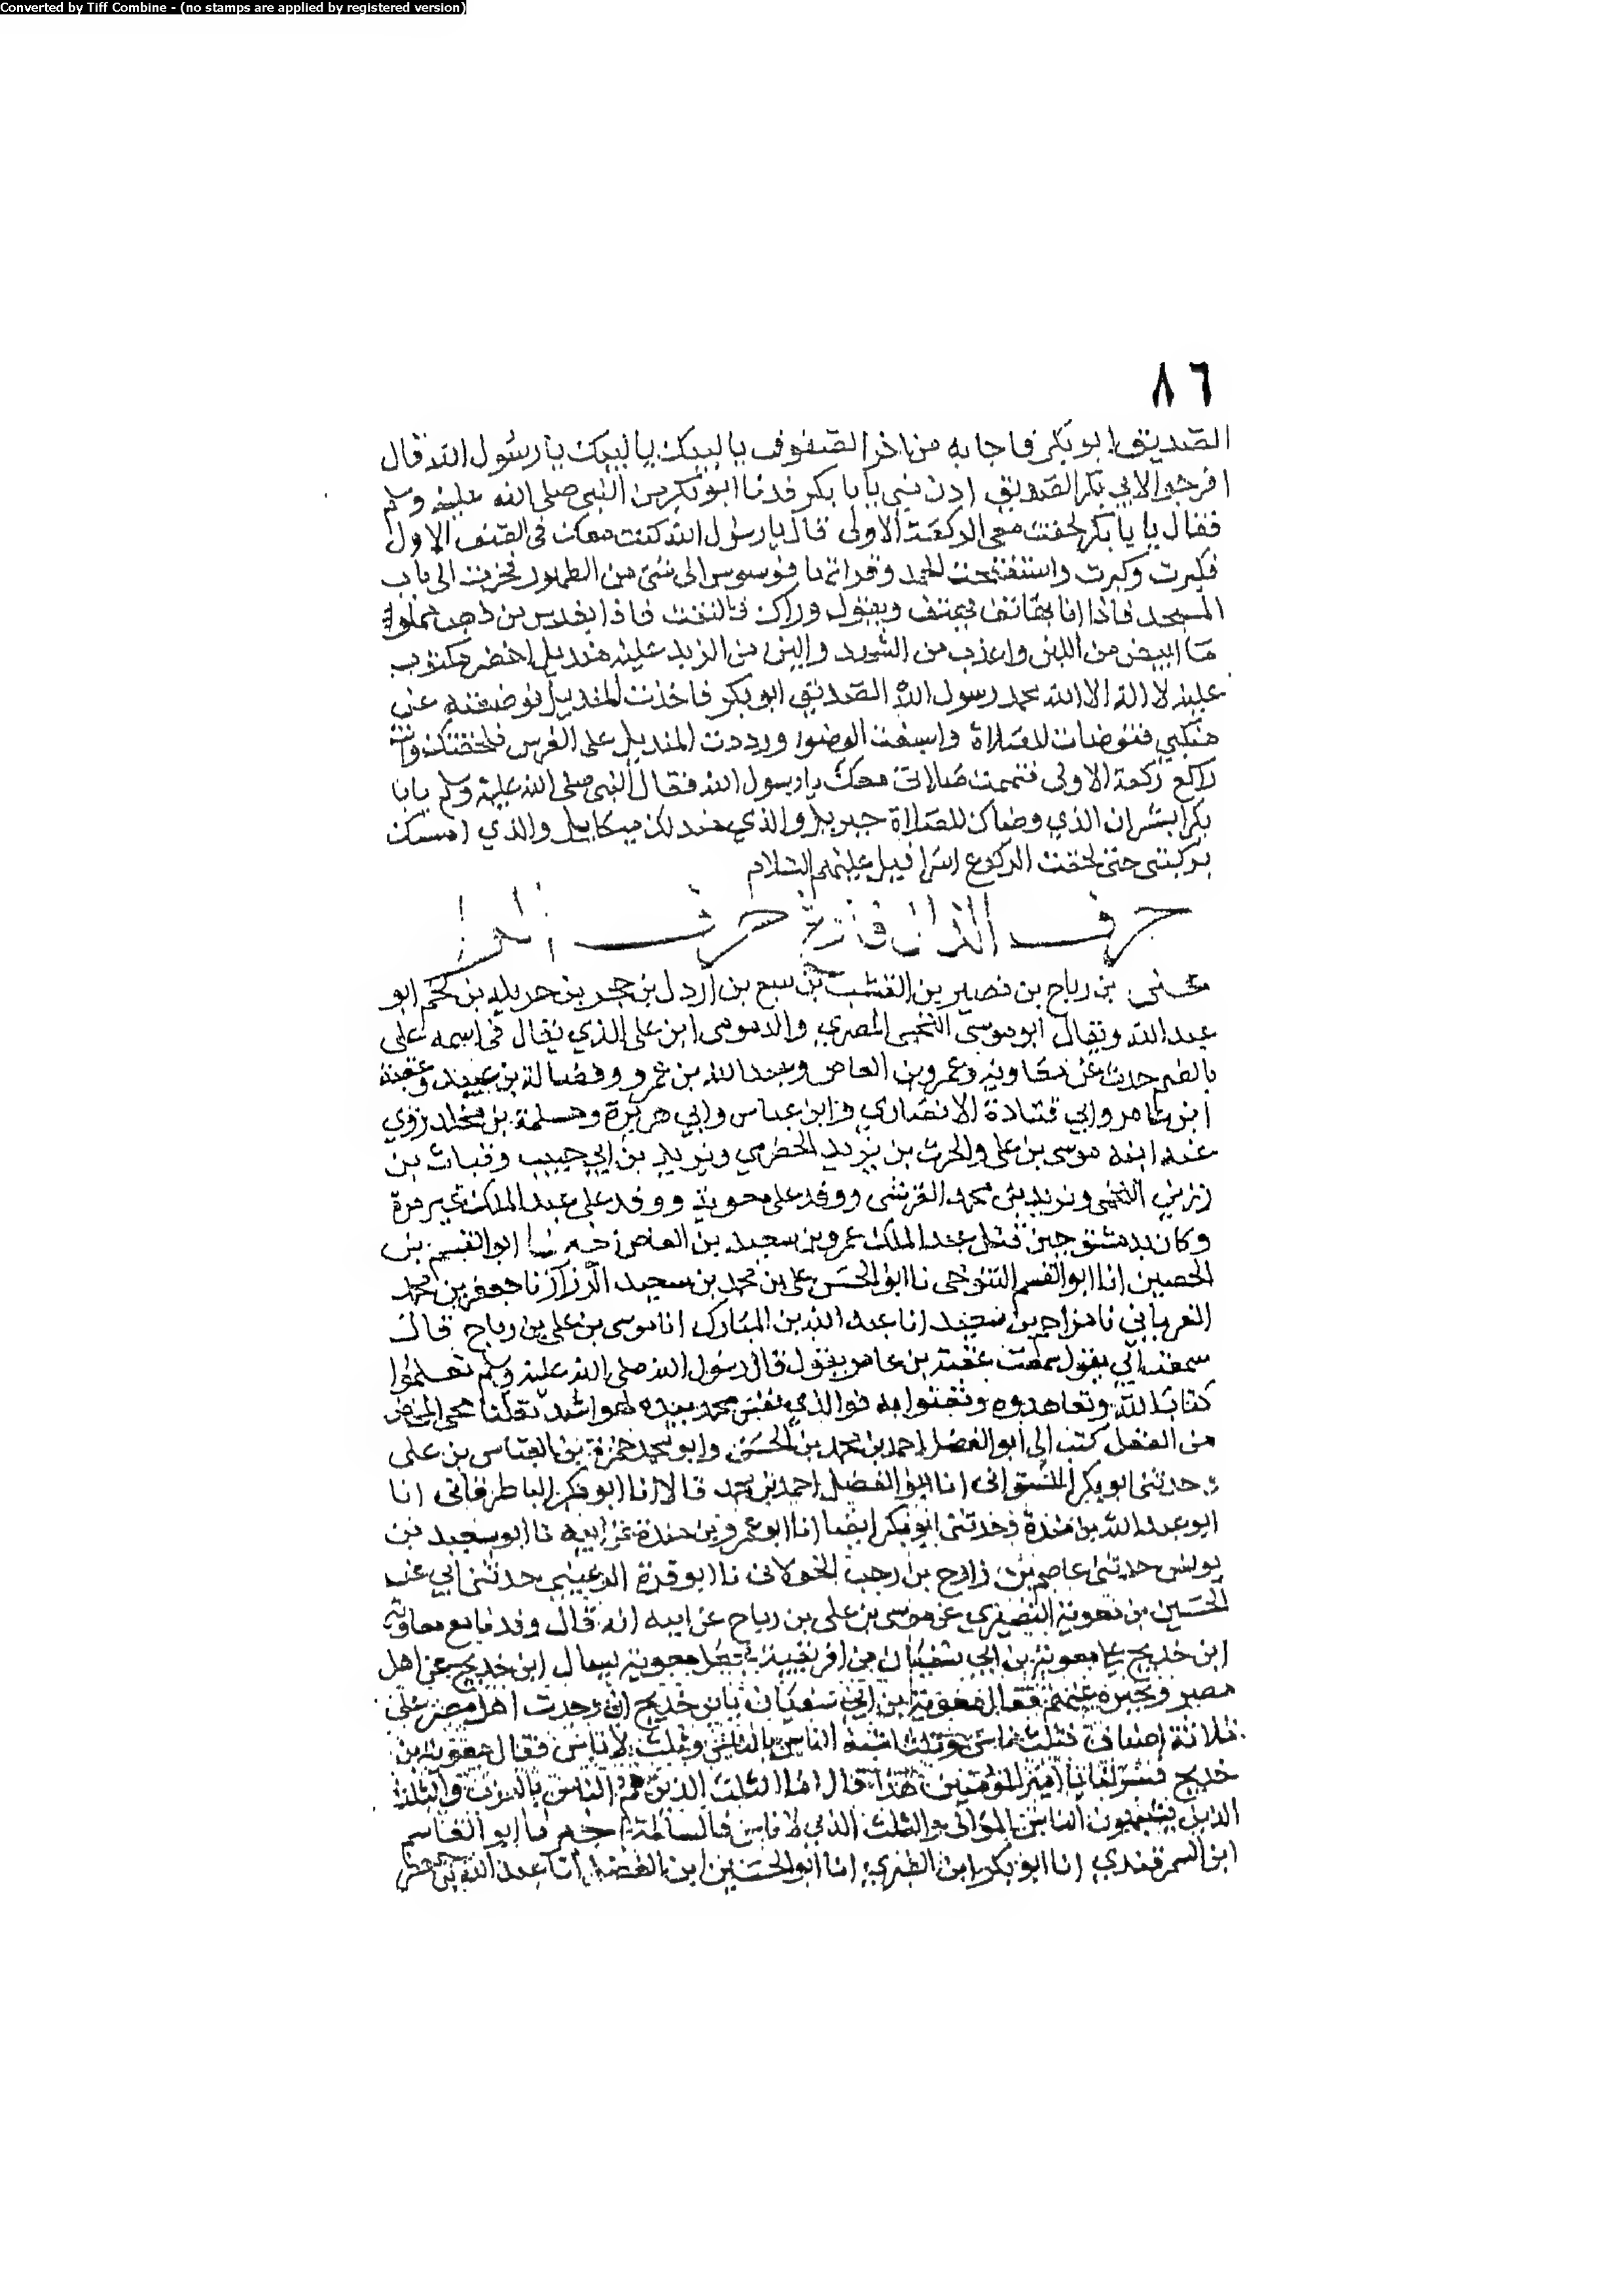 Converted by Tiff Combine - (no stamps are applied by registered version)
٨٦
الصديق ابو بكر فاجابه من اخر الصفوف يا لبيك يا لبيك يا رسول الله قال
افرجوا لابي بكر الصديق ادن مني يابا بكر فدنا ابو بكر من النبي صلى الله عليه وسلم
فقال يا يابا بكر لحقت معي الركعة الاولى قال يا رسول الله كنت معك في الصف الاول
فكبرت وكبرت واستفتحت الحمد وقراتها فوسوس الى شي من الطهور فخرجت الى باب
المسجد فاذا انا بهاتف يهتف ويقول وراك فالتفت فاذا بقدس من ذهب مملوا
ما ابيض من اللبن واعذب من الشهد والين من الزبد عليه منديل اخضر مكتوب
عليه لا اله الا الله محمد رسول الله الصديق ابو بكر فاخذت المنديل فوضعته على
منكبي فتوضات للصلاة واسبغت الوضوا ورددت المنديل على القدس فلحقتك وانت
راكع ركعة الاولى فتممت صلاتي معك يا رسول الله فقال النبي صلى الله عليه وسلم يابا
بكر ابشر ان الذي وضاك للصلاة جبريل والذي مندلك ميكايل والذي امسك
بركبتي حتى لحقت الركوع اسرافيل عليهم السلام
حرف الذال فارغ حرف الرا
علي بن رباح بن نصير بن القشب بن سبع بن اردل بن حجر بن جديلة بن لخم ابو
عبد الله ويقال ابو موسى اللخمي المصري والد موسى ابن علي الذي يقال في اسمه علي
بالضم حدث عن معاوية وعمرو بن العاص وعبد الله بن عمرو وفضالة بن عبيد وعقبة
ابن عامر وابي قتادة الانصاري وابن عباس وابي هريرة ومسلمة بن مخلد روى
عنه ابنه موسى بن علي والحرث بن يزيد الحضرمي ويزيد بن ابي حبيب وقباث بن
رزين اللخمي ويزيد بن محمد القرشي ووفد على معوية ووفد على عبد الملك غير مرة
وكان بدمشق حين قتل عبد الملك عمرو بن سعيد بن العاص اخبرنا ابو القسم بن
الحصين انا ابو القسم التنوخي نا ابو الحسن علي بن محمد بن سعيد الرزاز نا جعفر بن محمد
الفريابي نا مزاحم بن سعيد انا عبد الله بن المبارك انا موسى بن علي بن رباح قال
سمعت ابي يقول سمعت عقبة بن عامر يقول قال رسول الله صلى الله عليه وسلم تعلموا
كتاب الله وتعاهدوه وتغنوا به فوالذي نفس محمد بيده لهو اشد تفلتا من المخاض
من العقل كتب الي ابو الفضل احمد بن محمد بن الحسن وابو محمد حمزة بن العباس بن علي
وحدثني ابو بكر اللفتواني انا ابو الفضل احمد بن محمد قالا انا ابو بكر الباطرقاني انا
ابو عبد الله بن مندة وحدثني ابو بكر ايضا انا ابو عمرو بن مندة عن ابيه نا ابو سعيد بن
يونس حدثني عاصم بن زارح بن رجب الخولاني نا ابو قرة الرعيني حدثني ابي عن
الحسين بن معوية النصيري عن موسى بن علي بن رباح عن ابيه انه قال وفدنا مع معاوية
ابن خديج على معوية بن ابي سفيان من افريقية فجعل معوية يسال ابن خديج عن اهل
مصر ويخبره عنهم فقال معوية بن ابي سفيان يابن خديج اني وجدت اهل مصر على
ثلاثة اصناف فثلث ناس وثلث اشبه الناس بالناس وثلث لا ناس فقال معوية بن
خديج فسر لنا يا امير المؤمنين هذا قال اما الثلث الذين هم الناس فالعرب والثلث
الذين يشبهون الناس فالموالي والثلث الذي لا ناس فالمسالمة اخبرنا ابو القاسم
ابن السمرقندي انا ابو بكر ابن الطبري انا ابو الحسين ابن الفضل انا عبد الله بن جعفر